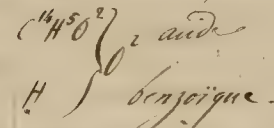 C¹⁴H⁵O² } O² acide
H } benzoïque.